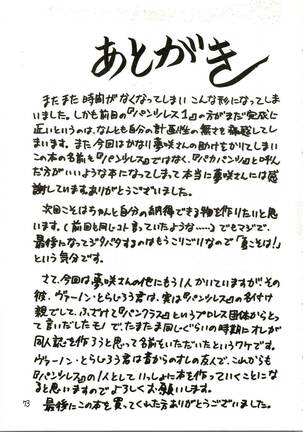 あとがき
またまた時間がなくなってしまい こんな形になってしま
いました。しかも前回の『パンツレス1』の方がまだ完成に
近いというのは、なんとも自分の計画性の無さを痛感してし
まいます。また今回はかなり夢咲さんの助けをかりてしまい
この本の名前も『パンツレス』ではなく、『パカパンツ』と呼ん
だ方がいいような本になってしまって本当に夢咲さんには感
謝しています。ありがとうございました。
次回こそはちゃんと自分の納得できる物を作りたいと思い
ます。(前回も同じコト言っていたような……)でもマジで、
最後になってジタバタするのはもうこりごりなので「夏こそは!」
という気分です。
さて、今回は夢咲さんの他にもう1人かいていますがその
彼、ヴァーノン・とらじろう君は、実は『パンツレス』の名付け
親でして、ふざけて『パンクラス』というプロレス団体からとっ
て言いだしたモノで、たまたま同じぐらいの時期にオレが
同人誌で作ろうと思って名前をいただいたというワケです。
ヴァーノン・とらじろう君は昔からのオレの友人で、これからも
『パンツレス』の1人として いっしょに本を作っていくことにな
ると思いますのでよろしくお願いします。
最後にこの本を買ってくれた方ありがとうございました。
73